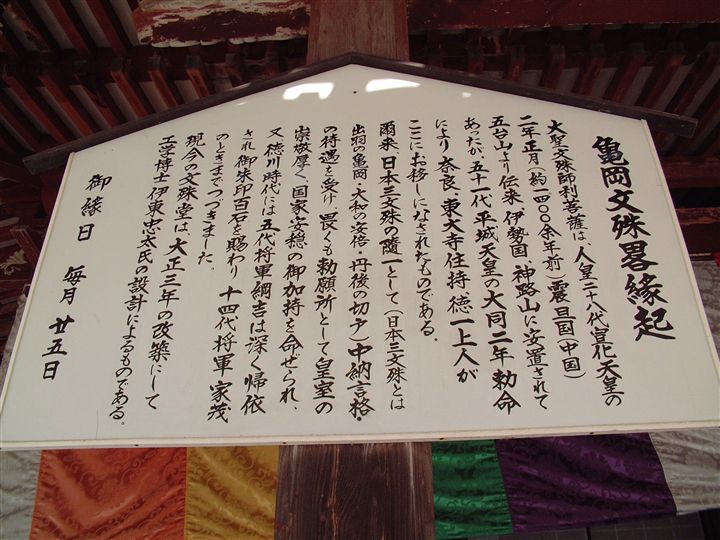 亀岡文殊畧縁起
大聖文殊師利菩薩は、人皇二十八代宣化天皇の
二年正月(約一四〇〇余年前)震旦国(中国)
五台山より伝来、伊勢国、神路山に安置されて
あったが五十一代平城天皇の大同二年勅命
により奈良、東大寺住持徳一上人が
ここにお移しになされたものである。
爾来、日本三文殊の随一として(日本三文殊とは
出羽の亀岡・大和の安倍・丹後の切戸)中納言格・
の待遇を受け、畏くも勅願所として皇室の
崇敬厚く、国家安穏の御加持を命ぜられ、
又徳川時代には五代将軍綱吉は深く帰依
され御朱印百石を賜わり十四代将軍家茂
のときまでつづきました。
現今の文殊堂は、大正三年の改築にして
工学博士伊東忠太氏の設計によるものである。
御縁日 毎月廿五日